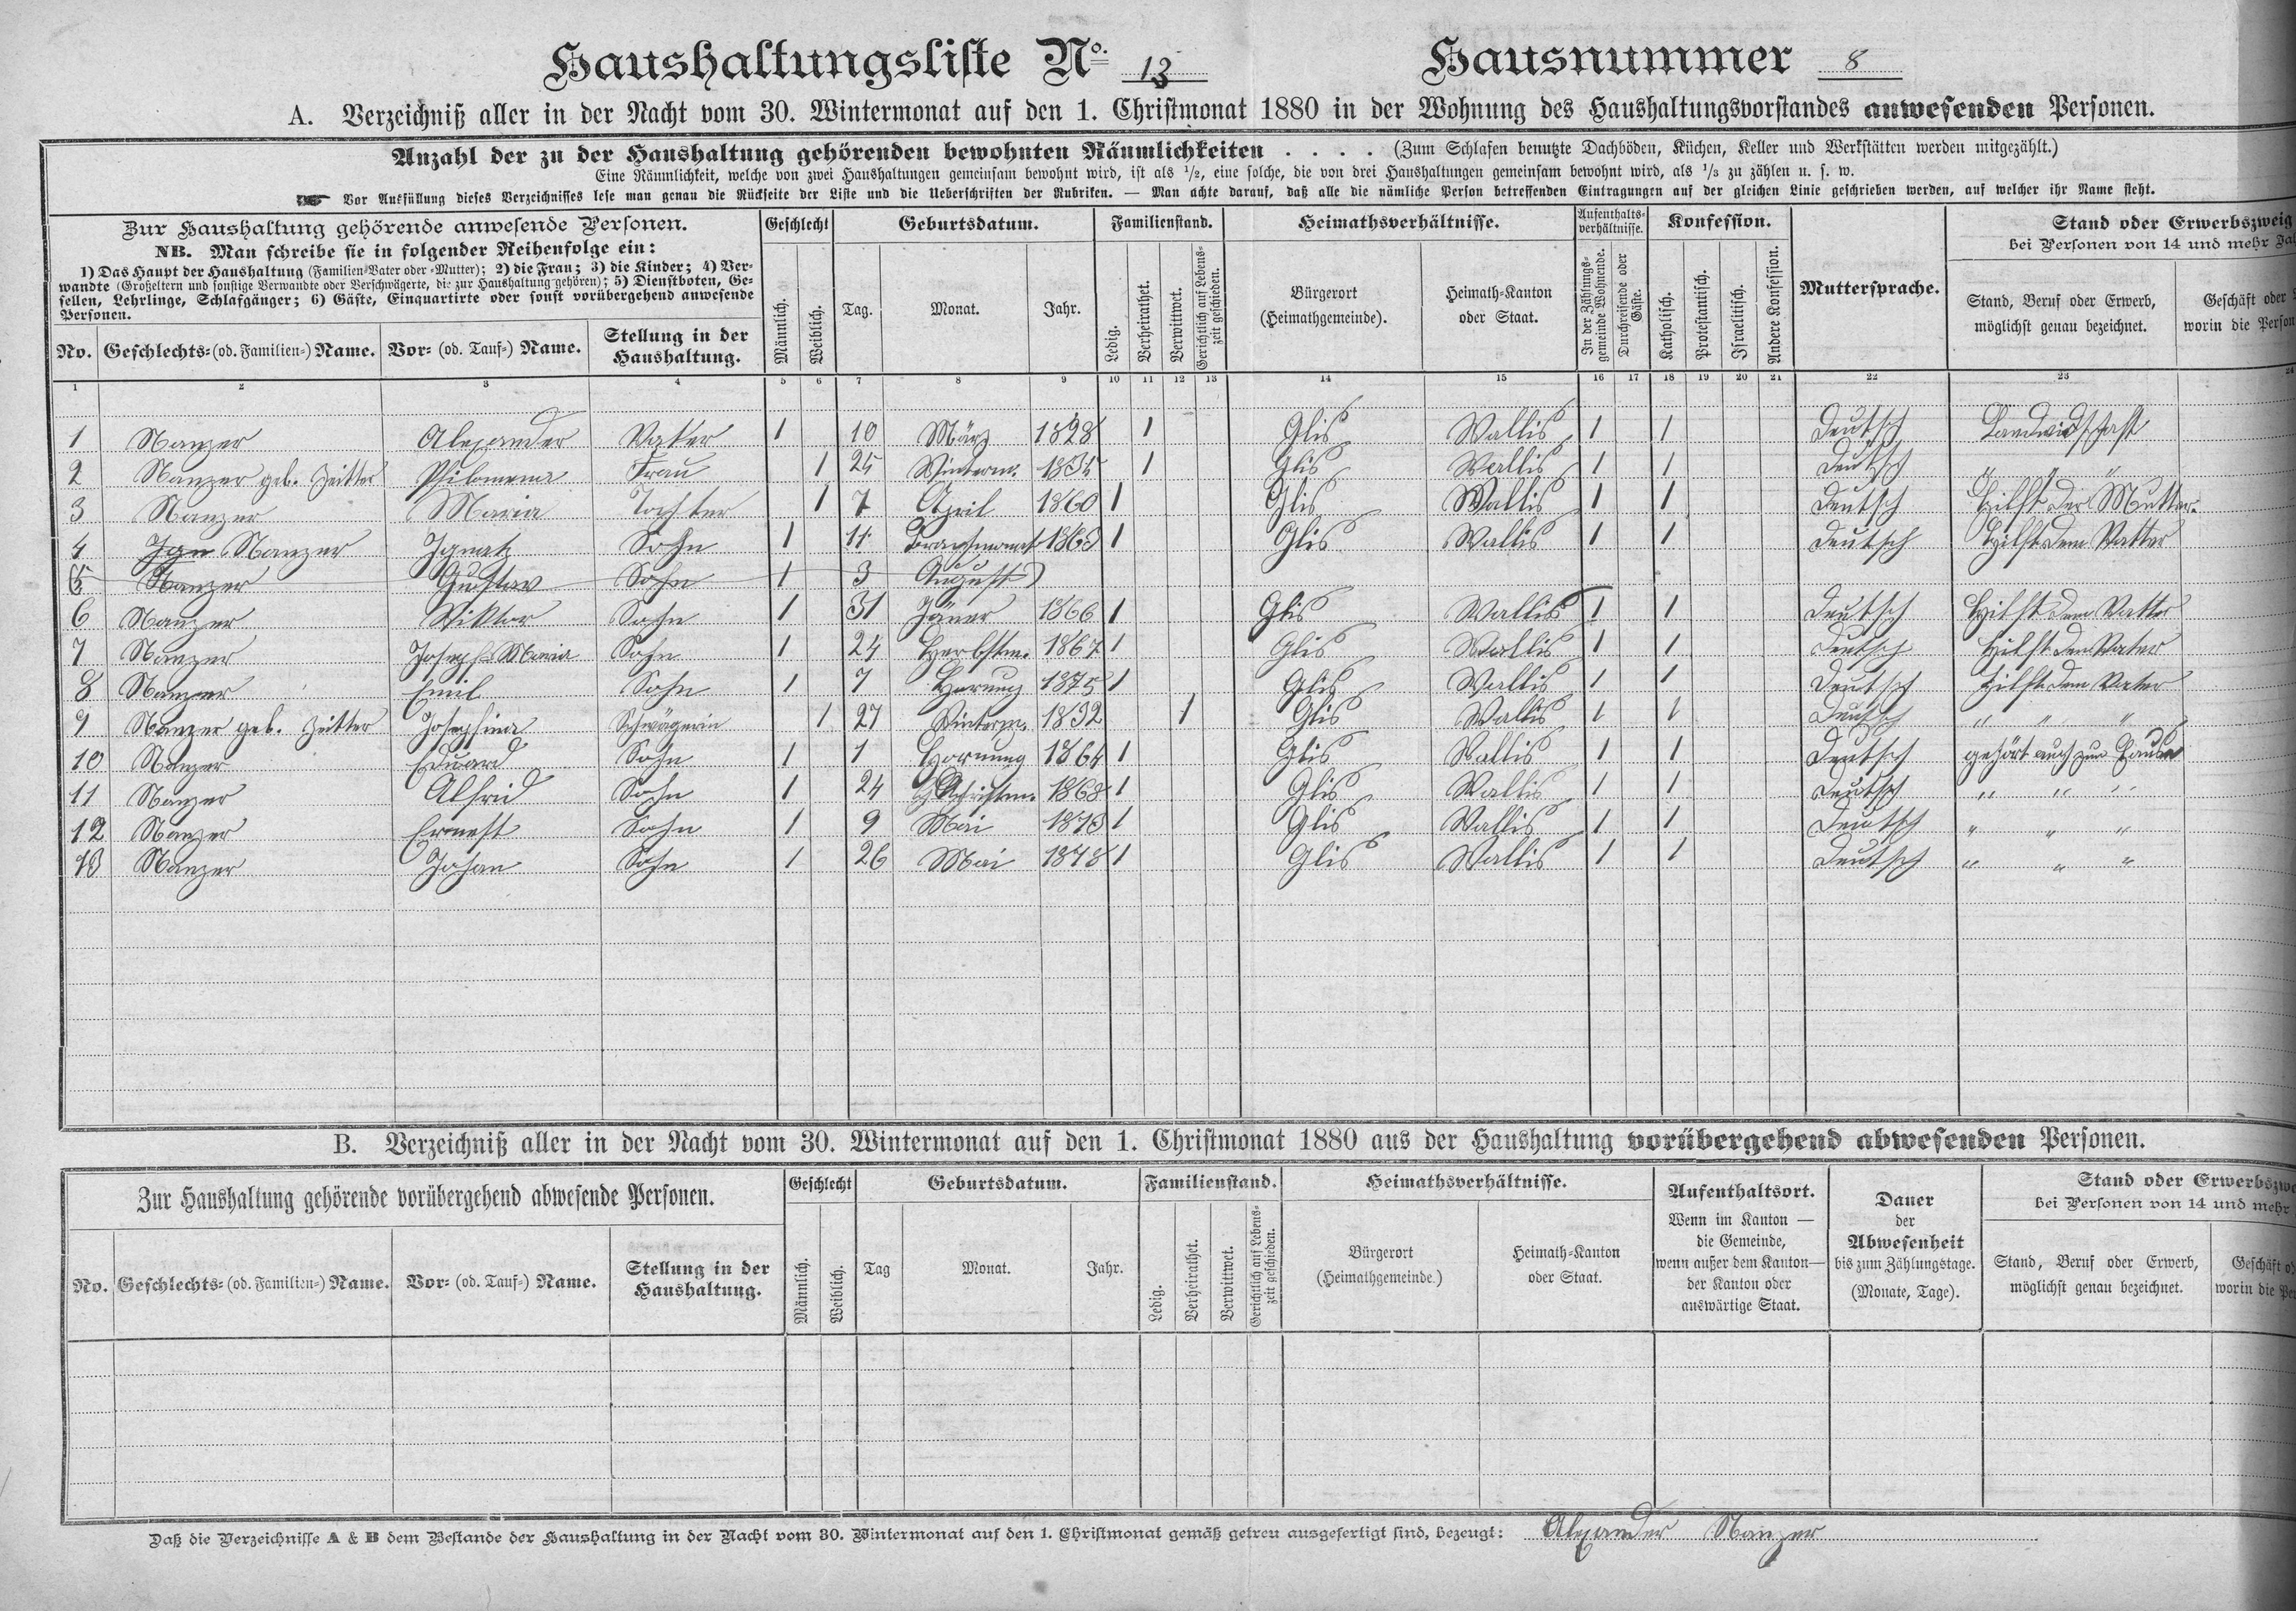 Haushaltungsliste No. 13 Hausnummer 8
A. Verzeichniß aller in der Nacht vom 30. Wintermonat auf den 1. Christmonat 1880 in der Wohnung des Haushaltungsvorstandes anwesenden Personen.
Anzahl der zu der Haushaltung gehörenden bewohnten Räumlichkeiten . . . . (Zum Schlafen benutzte Dachböden, Küchen, Keller und Werkstätten werden mitgezählt.)
Eine Räumlichkeit, welche von zwei Haushaltungen gemeinsam bewohnt wird, ist als 1/2, eine solche, die von drei Haushaltungen gemeinsam bewohnt wird, als 1/3 zu zählen u. s. w.
Vor Ausfüllung dieses Verzeichnisses lese man genau die Rückseite der Liste und die Ueberschriften der Rubriken. — Man achte darauf, daß alle die nämliche Person betreffenden Eintragungen auf der gleichen Linie geschrieben werden, auf welcher ihr Name steht.
Zur Haushaltung gehörende anwesende Personen.
NB. Man schreibe sie in folgender Reihenfolge ein:
1) Das Haupt der Haushaltung (Familien-Vater oder -Mutter); 2) die Frau; 3) die Kinder; 4) Ver-
wandte (Großeltern und sonstige Verwandte oder Verschwägerte, die zur Haushaltung gehören); 5) Dienstboten, Ge-
sellen, Lehrlinge, Schlafgänger; 6) Gäste, Einquartirte oder sonst vorübergehend anwesende
Personen.
No. Geschlechts- (od. Familien-) Name. Vor- (od. Tauf-) Name. Stellung in der
Haushaltung.
Geschlecht
Männlich. Weiblich.
Geburtsdatum.
Tag. Monat. Jahr.
Familienstand.
Ledig. Verheirathet. Verwittwet. Gerichtlich auf Lebens-
zeit geschieden.
Heimathsverhältnisse.
Bürgerort
(Heimathgemeinde).
Heimath-Kanton
oder Staat.
Aufenthalts-
verhältnisse.
In der Zählungs-
gemeinde Wohnende.
Durchreisende oder
Gäste.
Konfession.
Katholisch. Protestantisch. Israelitisch. Andere Konfession.
Muttersprache.
Stand oder Erwerbszweig
bei Personen von 14 und mehr
Stand, Beruf oder Erwerb,
möglichst genau bezeichnet.
Geschäft oder
worin die Person
1 2 3 4 5 6 7 8 9 10 11 12 13 14 15 16 17 18 19 20 21 22 23 24
1 Nanzer Alexander Vater 1 10 März 1828 1 Glis Wallis 1 1 Deutsch
2 Nanzer geb. Zeitter Philomena Frau 1 25 Winterm. 1835 1 Glis Wallis 1 1 Deutsch " " "
3 Nanzer Maria Tochter 1 7 April 1860 1 Glis Wallis 1 1 Deutsch Hilft der Mutter.
4 Ign Nanzer Ignatz Sohn 1 11 Brachmonat 1863 1 Glis Wallis 1 1 Deutsch Hilft dem Vatter
5 Nanzer Gustav Sohn 1 3 August
6 Nanzer Viktor Sohn 1 31 Jäner 1866 1 Glis Wallis 1 1 Deutsch Hilft dem Vatter
7 Nanzer Joseph Maria Sohn 1 24 Herbstm. 1867 1 Glis Wallis 1 1 Deutsch Hilft dem Vater
8 Nanzer Emil Sohn 1 7 Hornung 1875 1 Glis Wallis 1 1 Deutsch Hilft dem Vater
9 Nanzer geb. Zeitter Josephina Schwägerin 1 27 Winterm. 1832 1 Glis Wallis 1 1 Deutsch " " "
10 Nanzer Eduard Sohn 1 1 Hornung 1864 1 Glis Wallis 1 1 Deutsch gehört auch zum Hause
11 Nanzer Alfrid Sohn 1 24 Christm. 1868 1 Glis Wallis 1 1 Deutsch " " "
12 Nanzer Ernest Sohn 1 9 Mai 1873 1 Glis Wallis 1 1 Deutsch " " "
13 Nanzer Johan Sohn 1 26 Mai 1 Glis Wallis 1 1 Deutsch " " "
B. Verzeichniß aller in der Nacht vom 30. Wintermonat auf den 1. Christmonat 1880 aus der Haushaltung vorübergehend abwesenden Personen.
Zur Haushaltung gehörende vorübergehend abwesende Personen.
No. Geschlechts- (od. Familien-) Name. Vor- (od. Tauf-) Name. Stellung in der
Haushaltung.
Geschlecht
Männlich. Weiblich.
Geburtsdatum.
Tag Monat. Jahr.
Familienstand.
Ledig. Verheirathet. Verwittwet. Gerichtlich auf Lebens-
zeit geschieden.
Heimathsverhältnisse.
Bürgerort
(Heimathgemeinde.)
Heimath-Kanton
oder Staat.
Aufenthaltsort.
Wenn im Kanton —
die Gemeinde,
wenn außer dem Kanton—
der Kanton oder
auswärtige Staat.
Dauer
der
Abwesenheit
bis zum Zählungstage.
(Monate, Tage).
Stand oder Erwerbszwe
bei Personen von 14 und mehr
Stand, Beruf oder Erwerb,
möglichst genau bezeichnet.
Geschäft
worin die
Daß die Verzeichnisse A & B dem Bestande der Haushaltung in der Nacht vom 30. Wintermonat auf den 1. Christmonat gemäß getreu ausgefertigt sind, bezeugt: Alexander Nanzer